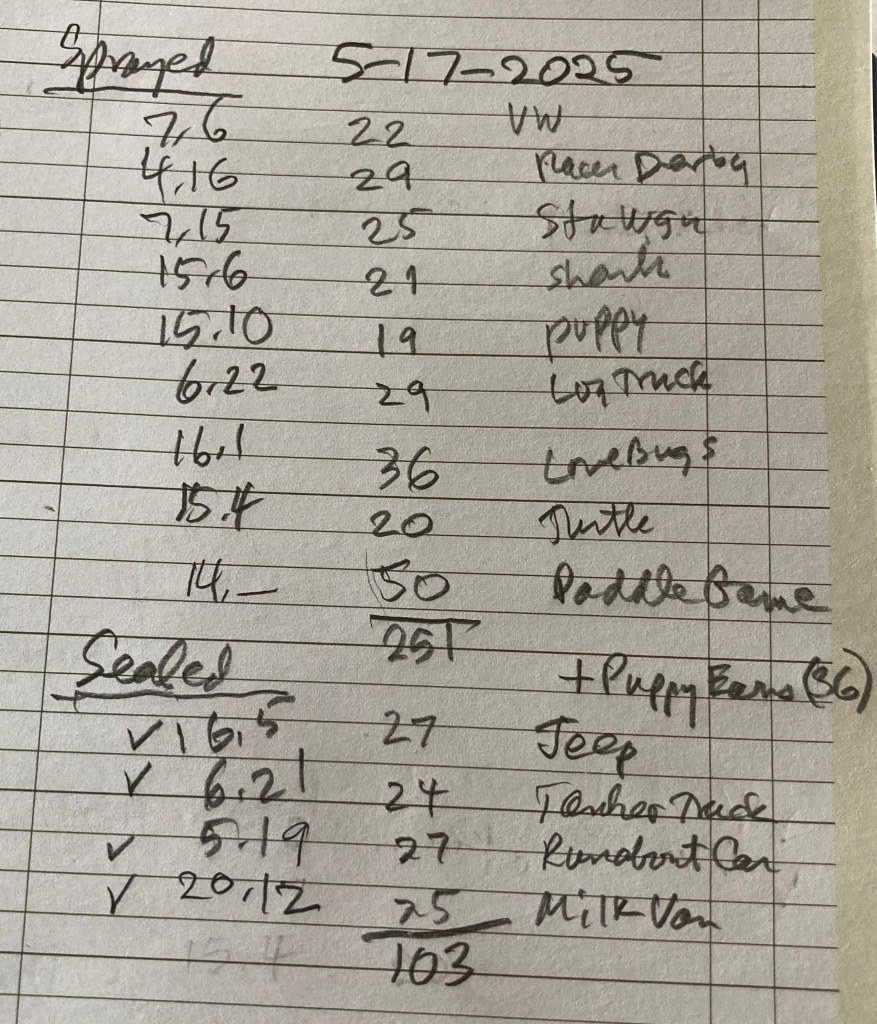 Sprayed 5-17-2025
7,6 22 VW
4,16 29 Racer Derby
7,15 25 Sta Wgn
15,6 21 shark
15,10 19 puppy
6,22 29 Log Truck
16,1 36 LoveBugs
15,4 20 Turtle
14,— 50 Paddle Game
251
+ Puppy Ears (36)
Sealed
✓ 16,5 27 Jeep
✓ 6,21 24 Tanker Truck
✓ 5,19 27 Runabout Car
✓ 20,12 25 Milk Van
103
15.4